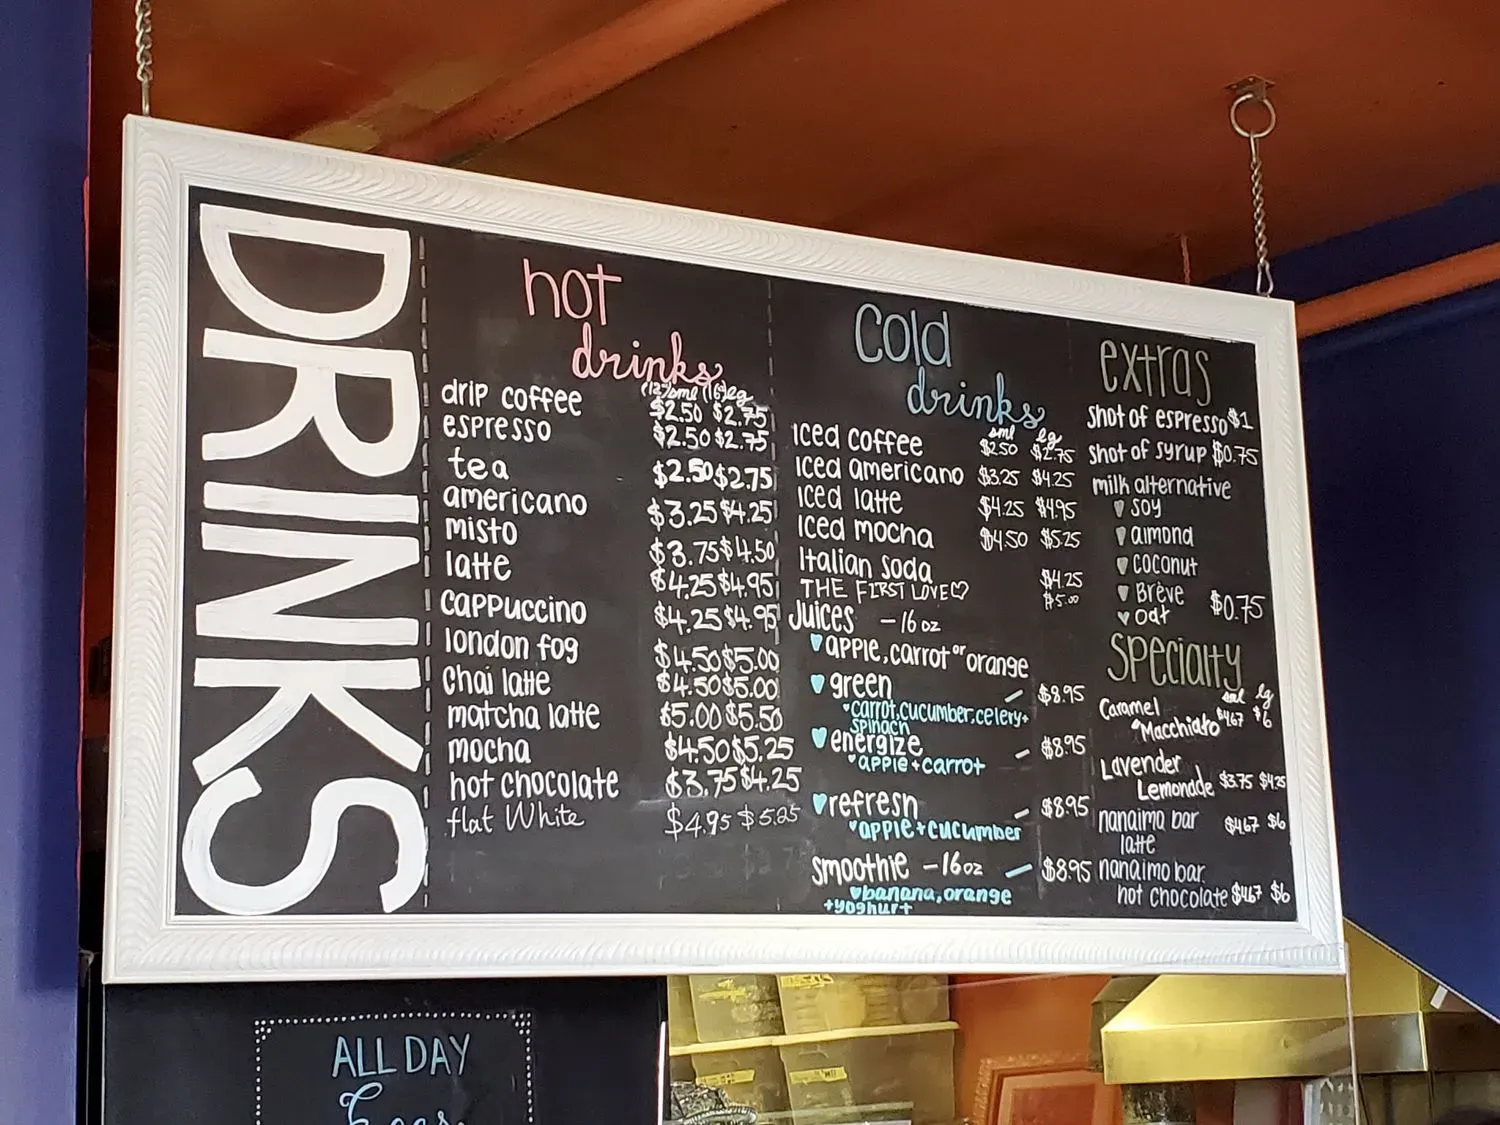 DRINKS
hot
drinks
(12) sml (16) lg
drip coffee $2.50 $2.75
espresso $2.50 $2.75
tea $2.50 $2.75
americano $3.25 $4.25
misto $3.75 $4.50
latte $4.25 $4.95
cappuccino $4.25 $4.95
london fog $4.50 $5.00
chai latte $4.50 $5.00
matcha latte $5.00 $5.50
mocha $4.50 $5.25
hot chocolate $3.75 $4.25
flat White $4.95 $5.25
cold
drinks
sml lg
Iced coffee $2.50 $2.75
Iced americano $3.25 $4.25
Iced latte $4.25 $4.95
Iced mocha $4.50 $5.25
Italian soda $4.25
THE FIRST LOVE♡ $5.00
Juices - 16 oz
apple, carrot or orange
green - $8.95
carrot, cucumber, celery+
spinach
energize - $8.95
apple + carrot
refresh - $8.95
apple + cucumber
smoothie - 16oz - $8.95
banana, orange
+yoghurt
extras
shot of espresso $1
shot of syrup $0.75
milk alternative
soy
almond
coconut
Brève $0.75
oat
Specialty
sml lg
Caramel
Macchiato $4.67 $6
Lavender
Lemonade $3.75 $4.25
nanaimo bar $4.67 $6
latte
nanaimo bar
hot chocolate $4.67 $6
ALL DAY